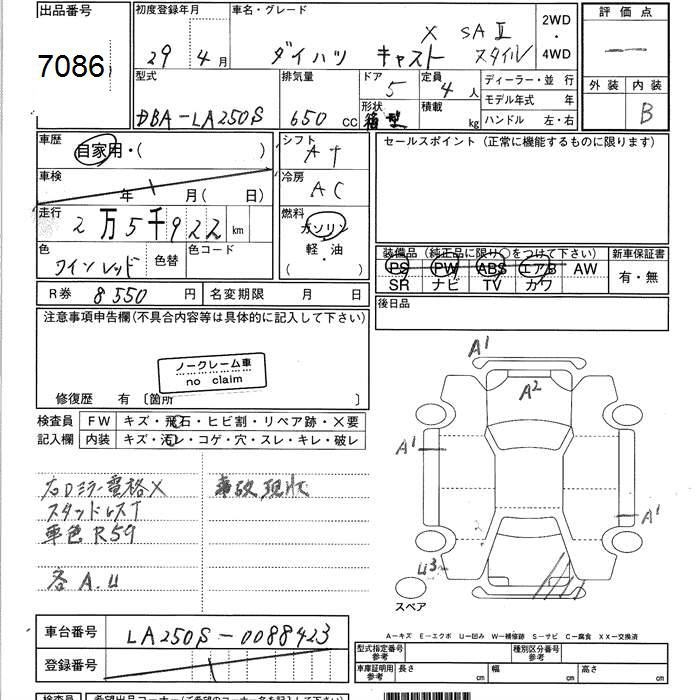 出品番号
7086
初度登録年月
29年4月
車名・グレード
X SAⅡ
ダイハツ キャスト スタイル
2WD
・
4WD
評価点
—
外装 内装
B
型式
DBA-LA250S
排気量
650 CC
ドア
5
定員
4人
形状
箱型
積載
kg
ディーラー・並行
モデル年式 年
ハンドル 左・右
車歴
自家用・( )
シフト
AT
セールスポイント (正常に機能するものに限ります)
車検
年 月( 日)
冷房
AC
走行
2万5千922 km
燃料
ガソリン
軽・油
( ・ )
色
ワインレッド
色替
色コード
装備品 (純正品に限り○をつけて下さい)
PS PW ABS エアB AW
SR ナビ TV カワ
新車保証書
有・無
R券 8550 円
名変期限 月 日
後日品
注意事項申告欄(不具合内容等は具体的に記入して下さい)
ノークレーム車
no claim
修復歴 有 〔箇所 〕
検査員
記入欄
FW キズ・飛石・ヒビ割・リペア跡・×要
内装 キズ・汚レ・コゲ・穴・スレ・キレ・破レ
右Dミラー電格×
スタッドレスT
車色 R59
各A.U
事故現状
A1
A2
A1
A1
U3
スペア
A−キズ E−エクボ U−凹み W−補修跡 S−サビ C−腐食 XX−交換済
車台番号
LA250S-0088423
登録番号
型式指定番号
参考
種別区分番号
参考
車庫証明用
参考
長さ cm 幅 cm 高さ cm
検査員
希望出品コーナー(ご希望のコーナー名を記入して下さい)